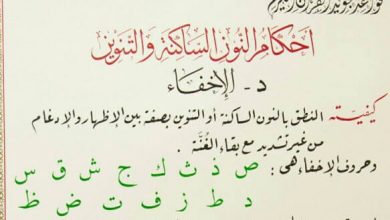 أحكام النون الساكنة والتنوين
د - الإخفاء
كيفيته النطق بالنون الساكنة أو التنوين بصفة بين الإظهار والإدغام
من غير تشديد مع بقاء الغنة .
وحروف الإخفاء هى : ص ذ ث ك ج ش ق س
د ط ز ف ت ض ظ